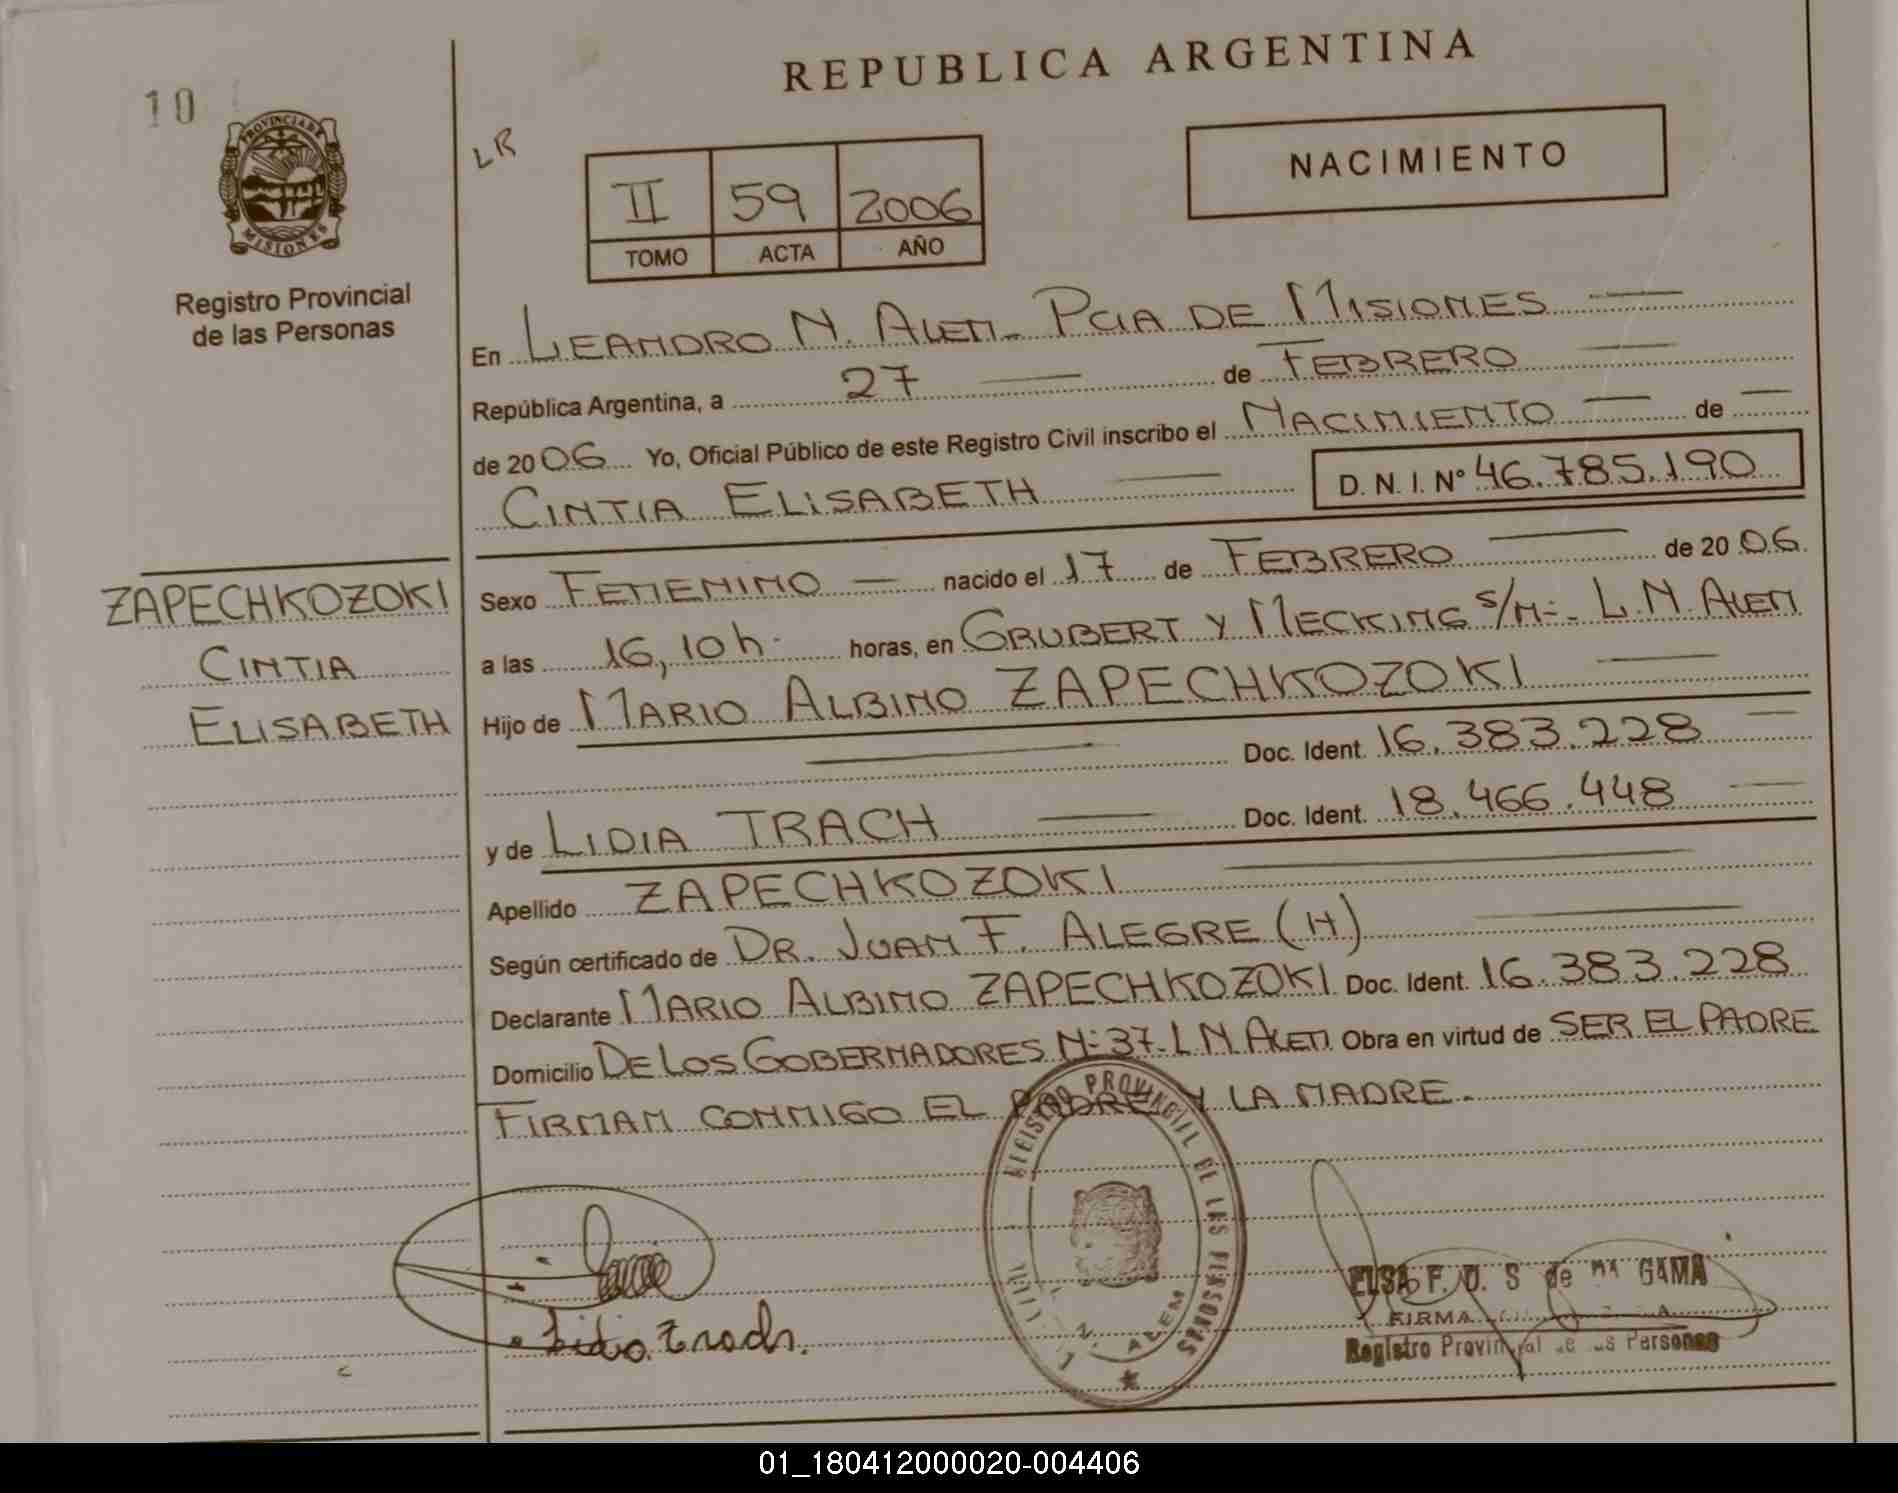 REPUBLICA ARGENTINA
10
PROVINCIA DE
MISIONES
Registro Provincial
de las Personas
LR
II 59 2006
TOMO ACTA AÑO
NACIMIENTO
En LEANDRO N. ALEM - PCIA DE MISIONES
República Argentina, a 27 de FEBRERO
de 2006 Yo, Oficial Público de este Registro Civil inscribo el NACIMIENTO de
CINTIA ELISABETH D. N. I. Nº 46.785.190
ZAPECHKOZOKI
CINTIA
ELISABETH
Sexo FEMENINO nacido el 17 de FEBRERO de 2006.
a las 16,10 h. horas, en GRUBERT Y MECKING S/Nº. L.N. ALEM
Hijo de MARIO ALBINO ZAPECHKOZOKI
Doc. Ident. 16.383.228
y de LIDIA TRACH Doc. Ident. 18.466.448
Apellido ZAPECHKOZOKI
Según certificado de DR. JUAN F. ALEGRE (H)
Declarante MARIO ALBINO ZAPECHKOZOKI Doc. Ident. 16.383.228
Domicilio DE LOS GOBERNADORES Nº 37-L N. ALEM Obra en virtud de SER EL PADRE
FIRMAN CONMIGO EL PADRE Y LA MADRE.
REGISTRO PROVINCIAL DE LAS PERSONAS
L. N. ALEM
Lidia Trach.
ELSA F. D. S de GAMA
FIRMA
Registro Provincial de las Personas
01_180412000020-004406